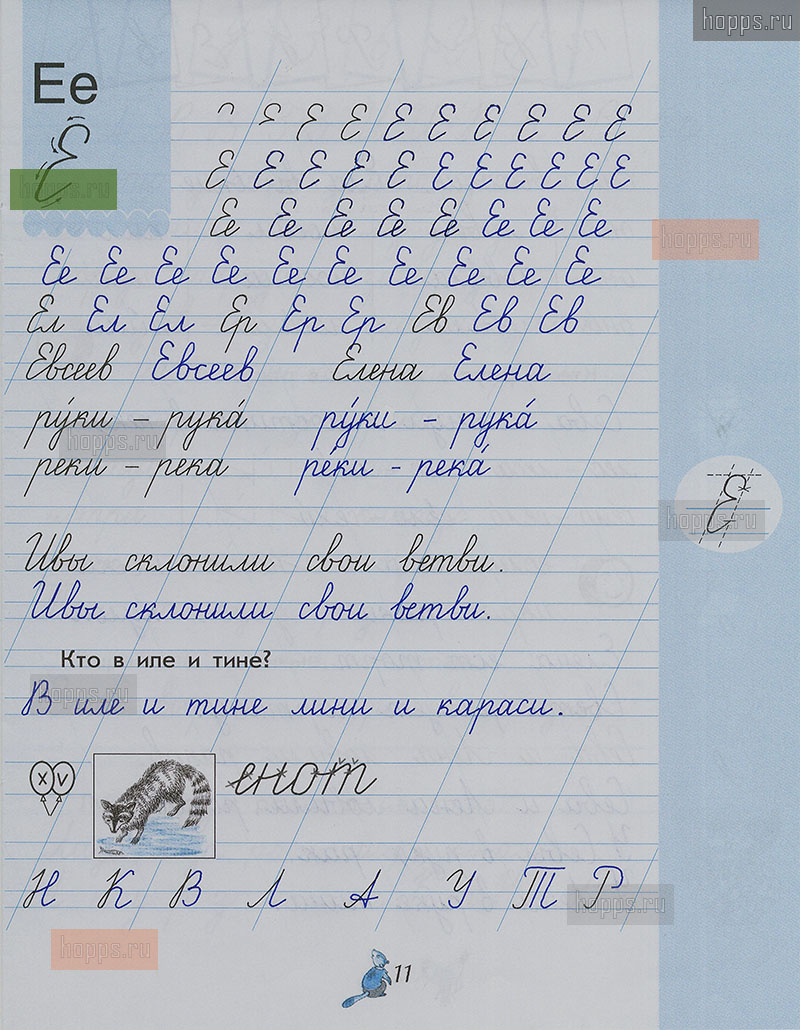 hopps.ru
Ее
Е
hopps.ru
Е Е Е Е Е Е Е Е
Е Е Е Е Е Е Е Е Е Е
Ее Ее Ее Ее Ее Ее Ее Ее
hopps.ru
Ее Ее Ее Ее Ее Ее Ее Ее Ее Ее
Ел Ел Ел Ер Ер Ер Ев Ев Ев
Евсеев Евсеев Елена Елена
ру́ки – рука́ ру́ки – рука́
hopps.ru
реки – река ре́ки - река́
Е
hopps.ru
Ивы склонили свои ветви.
Ивы склонили свои ветви.
Кто в иле и тине?
hopps.ru
В иле и тине лини и караси.
х v
енот
Н К В Л А У Т Р
hopps.ru
hopps.ru
11